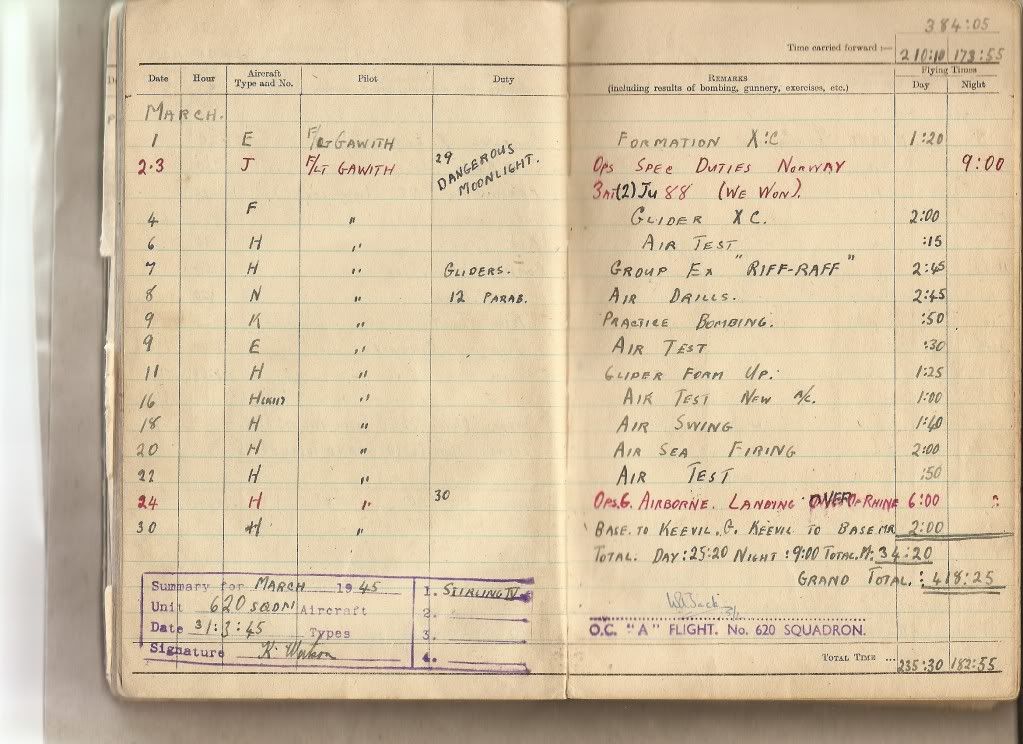 384:05
Time carried forward :— 210:10 173:55
Date Hour Aircraft Type and No. Pilot Duty REMARKS (including results of bombing, gunnery, exercises, etc.) Flying Times Day Night
MARCH.
1 E F/LT GAWITH FORMATION X:C 1:20
2·3 J F/LT GAWITH 29 DANGEROUS MOONLIGHT. OPS SPEC DUTIES NORWAY 9:00
(2) JU 88 (WE WON).
4 F " GLIDER X C. 2:00
6 H " AIR TEST :15
7 H " GLIDERS. GROUP EX "RIFF-RAFF" 2:45
8 N " 12 PARAB. AIR DRILLS. 2:45
9 K " PRACTICE BOMBING. :50
9 E " AIR TEST :30
11 H " GLIDER FORM UP. 1:25
16 H " AIR TEST NEW A/C. 1:00
18 H " AIR SWING 1:40
20 H " AIR SEA FIRING 2:00
22 H " AIR TEST :50
24 H " 30 OPS.G. AIRBORNE. LANDING OVER RHINE 6:00
30 H " BASE. TO KEEVIL. G. KEEVIL TO BASE 2:00
TOTAL. DAY:25:20 NIGHT:9:00 TOTAL.M: 34:20
GRAND TOTAL.: 418:25
Summary for MARCH 1945 1. STIRLING IV
Unit 620 SQDN Aircraft 2.
Date 31:3:45 Types 3.
Signature K. Watson 4.
O.C. "A" FLIGHT. No. 620 SQUADRON.
TOTAL TIME ... 235:30 182:55